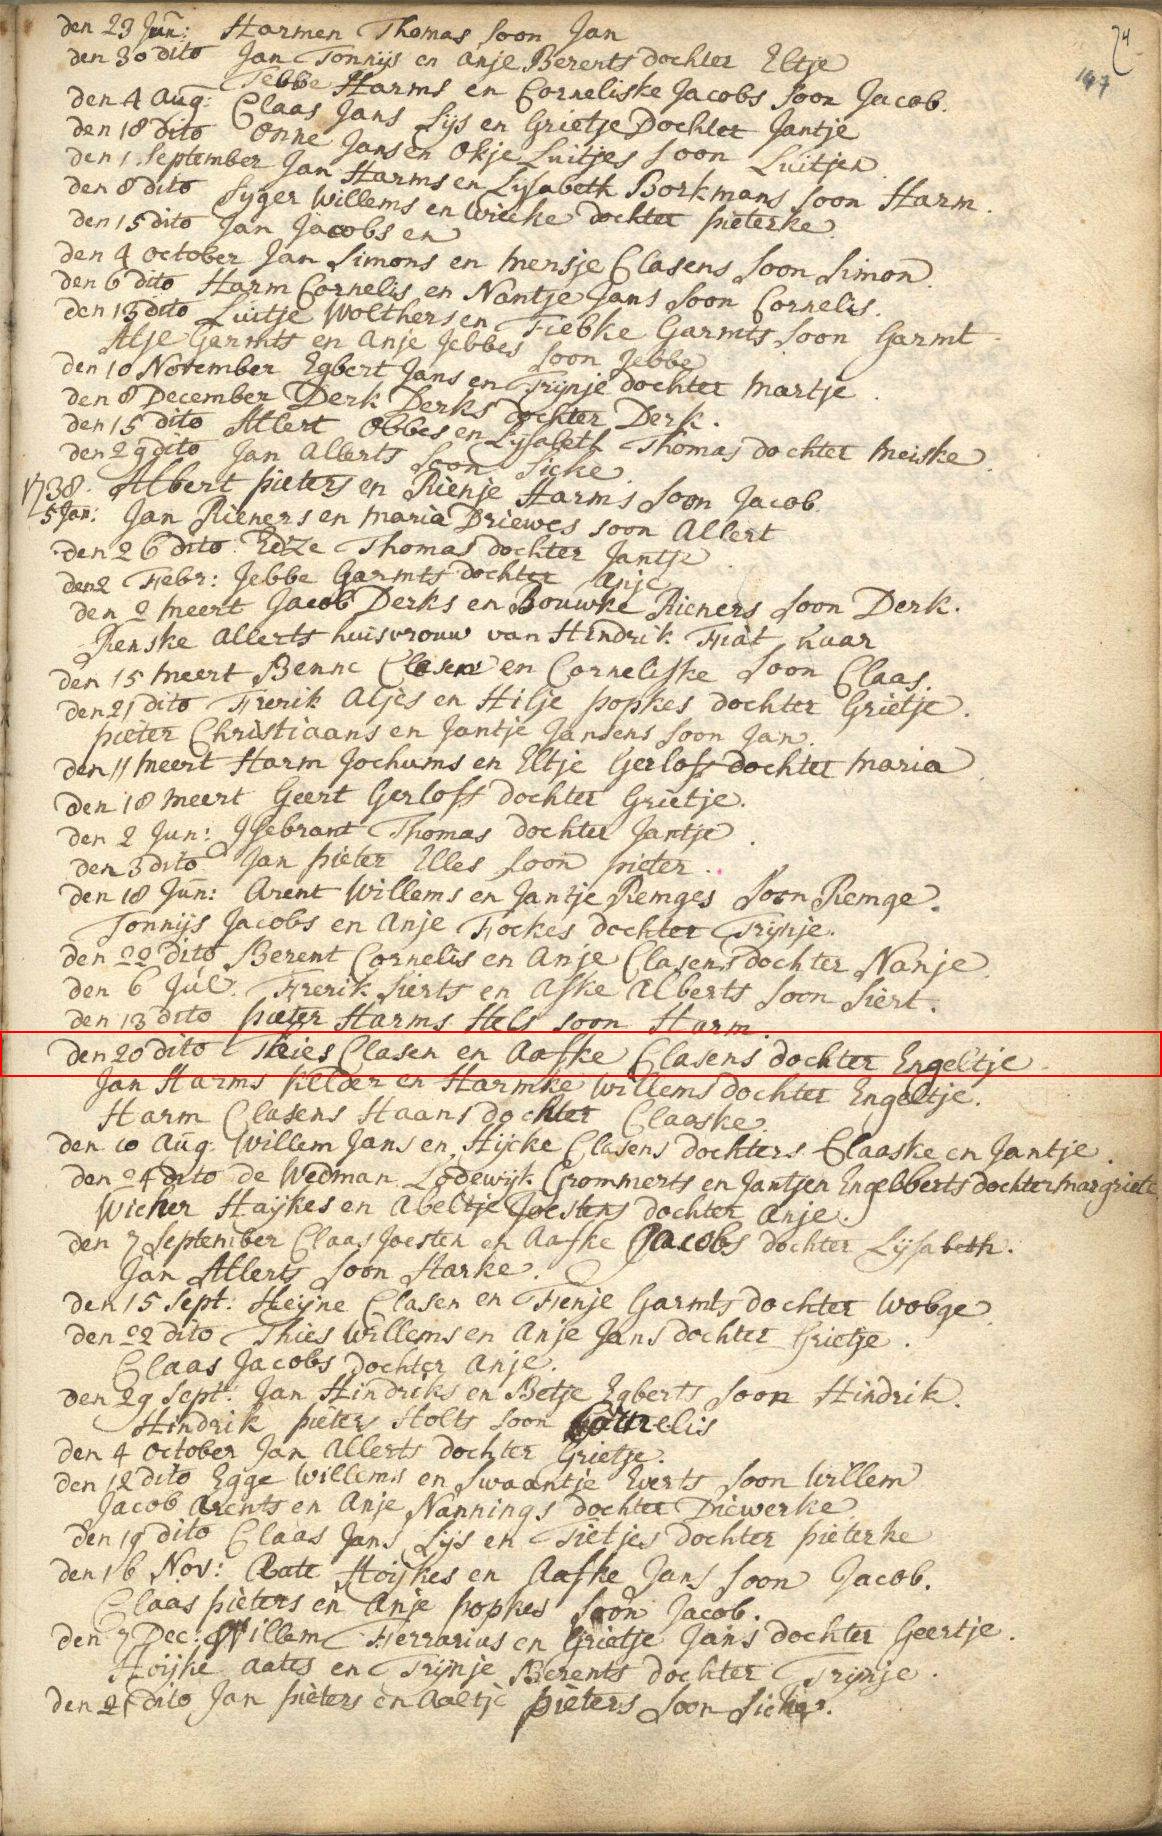 24
147
den 23 Jun: Harmen Thomas soon Jan
den 30 dito Jan Tonnijs en Anje Berents dochter Eltje
Tebbe Harms en Corneliske Jacobs soon Jacob.
den 4 Aug: Claas Jans Lijs en Grietje Dochter Jantje
den 18 dito Onne Jansen Okje Luitjes soon Luitjen
den 1 September Jan Harms en Lijsabeth Borkmans soon Harm.
den 8 dito Sijger Willems en Wicke dochter pieterke
den 15 dito Jan Jacobs en
den 4 october Jan Simons en Mensje Clasens soon Simon.
den 6 dito Harm Cornelis en Nantje Jans soon Cornelis.
den 13 dito Luitje Wolthers en Fiebke Garmts soon Garmt.
Atje Garmts en Anje Jebbes soon Jebbe
den 10 November Egbert Jans en Trijnje dochter Martje.
den 8 December Derk Derks dochter Derk.
den 15 dito Allert Obbes en Lijsabeth Thomas dochter Meiske
den 29 dito Jan Allerts soon Sicke
1738. Albert pieters en Rienje Harms soon Jacob
5 Jan: Jan Rieners en Maria Driewes soon Allert
den 26 dito Edze Thomas dochter Jantje
den 2 Febr: Jebbe Garmts dochter Anje
den 2 Meert Jacob Derks en Bouwke Rieners soon Derk.
Renske Allerts huisvrouw van Hindrik Fiat, haar
den 15 Meert Benne Clasen en Corneliske soon Claas.
den 21 dito Frerik Atjes en Hilje popkes dochter Grietje.
pieter Christiaans en Jantje Jansens soon Jan.
den 11 Meert Harm Jochums en Eltje Gerlofs dochter Maria
den 18 Meert Geert Gerlofs dochter Grietje.
den 2 Jun: Ysebrant Thomas dochter Jantje.
den 3 dito Jan pieter Elles soon pieter.
den 18 Jun: Arent Willems en Jantje Remges soon Remge.
Tonnijs Jacobs en Anje Fockes dochter Trijnje.
den 22 dito Berent Cornelis en Anje Clasens dochter Nanje
den 6 Jul. Frerik Sierts en Afke Alberts soon Siert.
den 13 dito pieter Harms Hels soon Harm.
den 20 dito Theies Clasen en Aafke Clasens dochter Engeltje.
Jan Harms Kelder en Harmke Willems dochter Engeltje.
Harm Clasens Haans dochter Claaske.
den 10 Aug: Willem Jans en Hijcke Clasens dochters Claaske en Jantje.
den 24 dito de Wedman Lodewijk Crommerts en Jantjen Engelberts dochter Margriete
Wicher Haijkes en Abeltje Joestens dochter Anje.
den 7 September Claas Joesten en Aafke Jacobs dochter Lijsabeth.
Jan Allerts soon Harke.
den 15 Sept: Heijne Clasen en Fienje Garmts dochter Wobge
den 22 dito Thies Willems en Anje Jans dochter Grietje.
Claas Jacobs dochter Anje.
den 29 Sept: Jan Hindriks en Betje Egberts soon Hindrik.
Hindrik pieters Holts soon Cornelis
den 4 October Jan Allerts dochter Grietje.
den 12 dito Egge Willems en Swaantje Everts soon Willem
Jacob Arents en Anje Nannings dochter Diewerke
den 19 dito Claas Jans Lijs en Tietjes dochter pieterke
den 16 Nov: Aate Hoijkes en Aafke Jans soon Jacob.
Claas pieters en Anje popkes soon Jacob.
den 7 Dec: Willem Ferrarius en Grietje Jans dochter Geertje.
Hoijke Aates en Trijnje Berents dochter Trijnje.
den 21 dito Jan pieters en Aaltje pieters soon